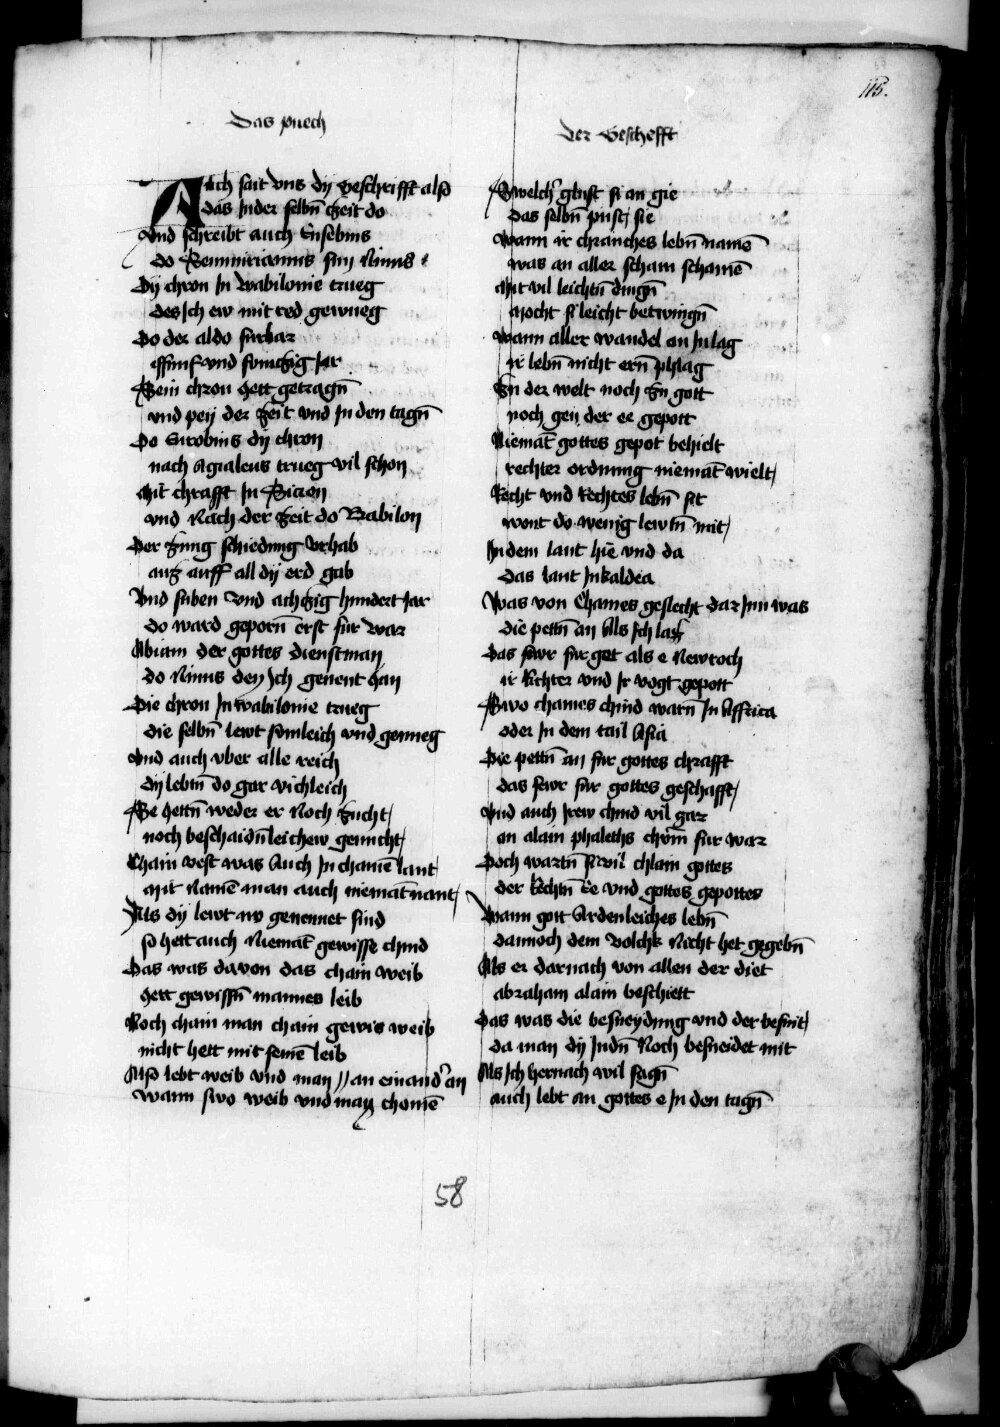 115.
Das puech
der Geschefft
Auch sait vns dy geschrifft also
das Inder selbn̄ zeit do
Vnd schreibt auch Eusebius
do Semmiramis sun Ninus
Dy chron In wabilonie trueg
des Ich ew mit red gewueg
Do der aldo furbar
ffunf vnd funczig Jar
Sein chron hett getragn̄
vnd pey der zeit vnd In den tagn̄
Do dy chron
nach Agialeus trueg vil schon
Mit chrafft In Sicion
vnd Nach der zeit do Babilon
Der zung schiedung vrhab
auz auff all dy erd gab
Vnd siben vnd achzig hundert Jar
do ward geporn̄ erst fur war
Abiam der gottes dienstman
do Ninus den Ich genent han
Die chron In wabilonie trueg
die selbn̄ lewt somleich vnd genueg
Vnd auch vber alle reich
dy lebtn̄ do gar vichleich
Se hettn̄ weder er Noch zucht
noch beschaidn̄leichew genucht
Chain vest was Auch In chainē lant
mit Namē man auch niemāt nant
Als dy lewt nw genennet sind
so hett auch Niemāt gewisse chind
Das was davon das chain weib
hett gewissn̄ mannes leib
Noch chain man chain gewis weib
nicht hett mit seinē leib
Also lebt weib vnd man // an einand' an
wann swo weib vnd man chomē
Swelch' glust si an gie
das selbn̄ pust sie
Wann ir chranches lebn̄ namē
was an aller scham schamē
Mit vil leichtn̄ dingn̄
mocht si leicht betwingn̄
Wann aller wandel an In lag
ir lebn̄ nicht ern̄ phlag
Zu der welt noch zu gott
noch gen der ee gepott
Niemāt gottes gepot behielt
rechter ordnung niemāt wielt
Recht vnd Rechtes lebn̄ sit
wont do wenig lewtn̄ mit
In dem lant hie vnd da
das lant In kaldea
Was von Chames geslecht dar Inn was
die pettn̄ an Als Ich las
Das fewr fur got als e Newroch
ir Richter vnd Ir vogt gepott
Swo chames chind warn̄ In Affrica
oder In dem tail Asia
Die pettn̄ an fur gottes chrafft
das fewr fur gottes geschafft
Vnd auch Irew chind vil gar
an alain phaleths chom̄ fur war
Doch wartn̄ si vil chlain gottes
der Rechtn̄ Ee vnd gottes gepottes
Wann gott Ordenleiches lebn̄
dannoch dem volchk Nicht het gegebn̄
Als er darnach von allen der diet
abraham alain beschiett
Das was die besneydung vnd der besnit
da man dy Judn̄ Noch besneidet mit
Als Ich hernach wil sagn̄
auch lebt an gottes e In den tagn̄
58